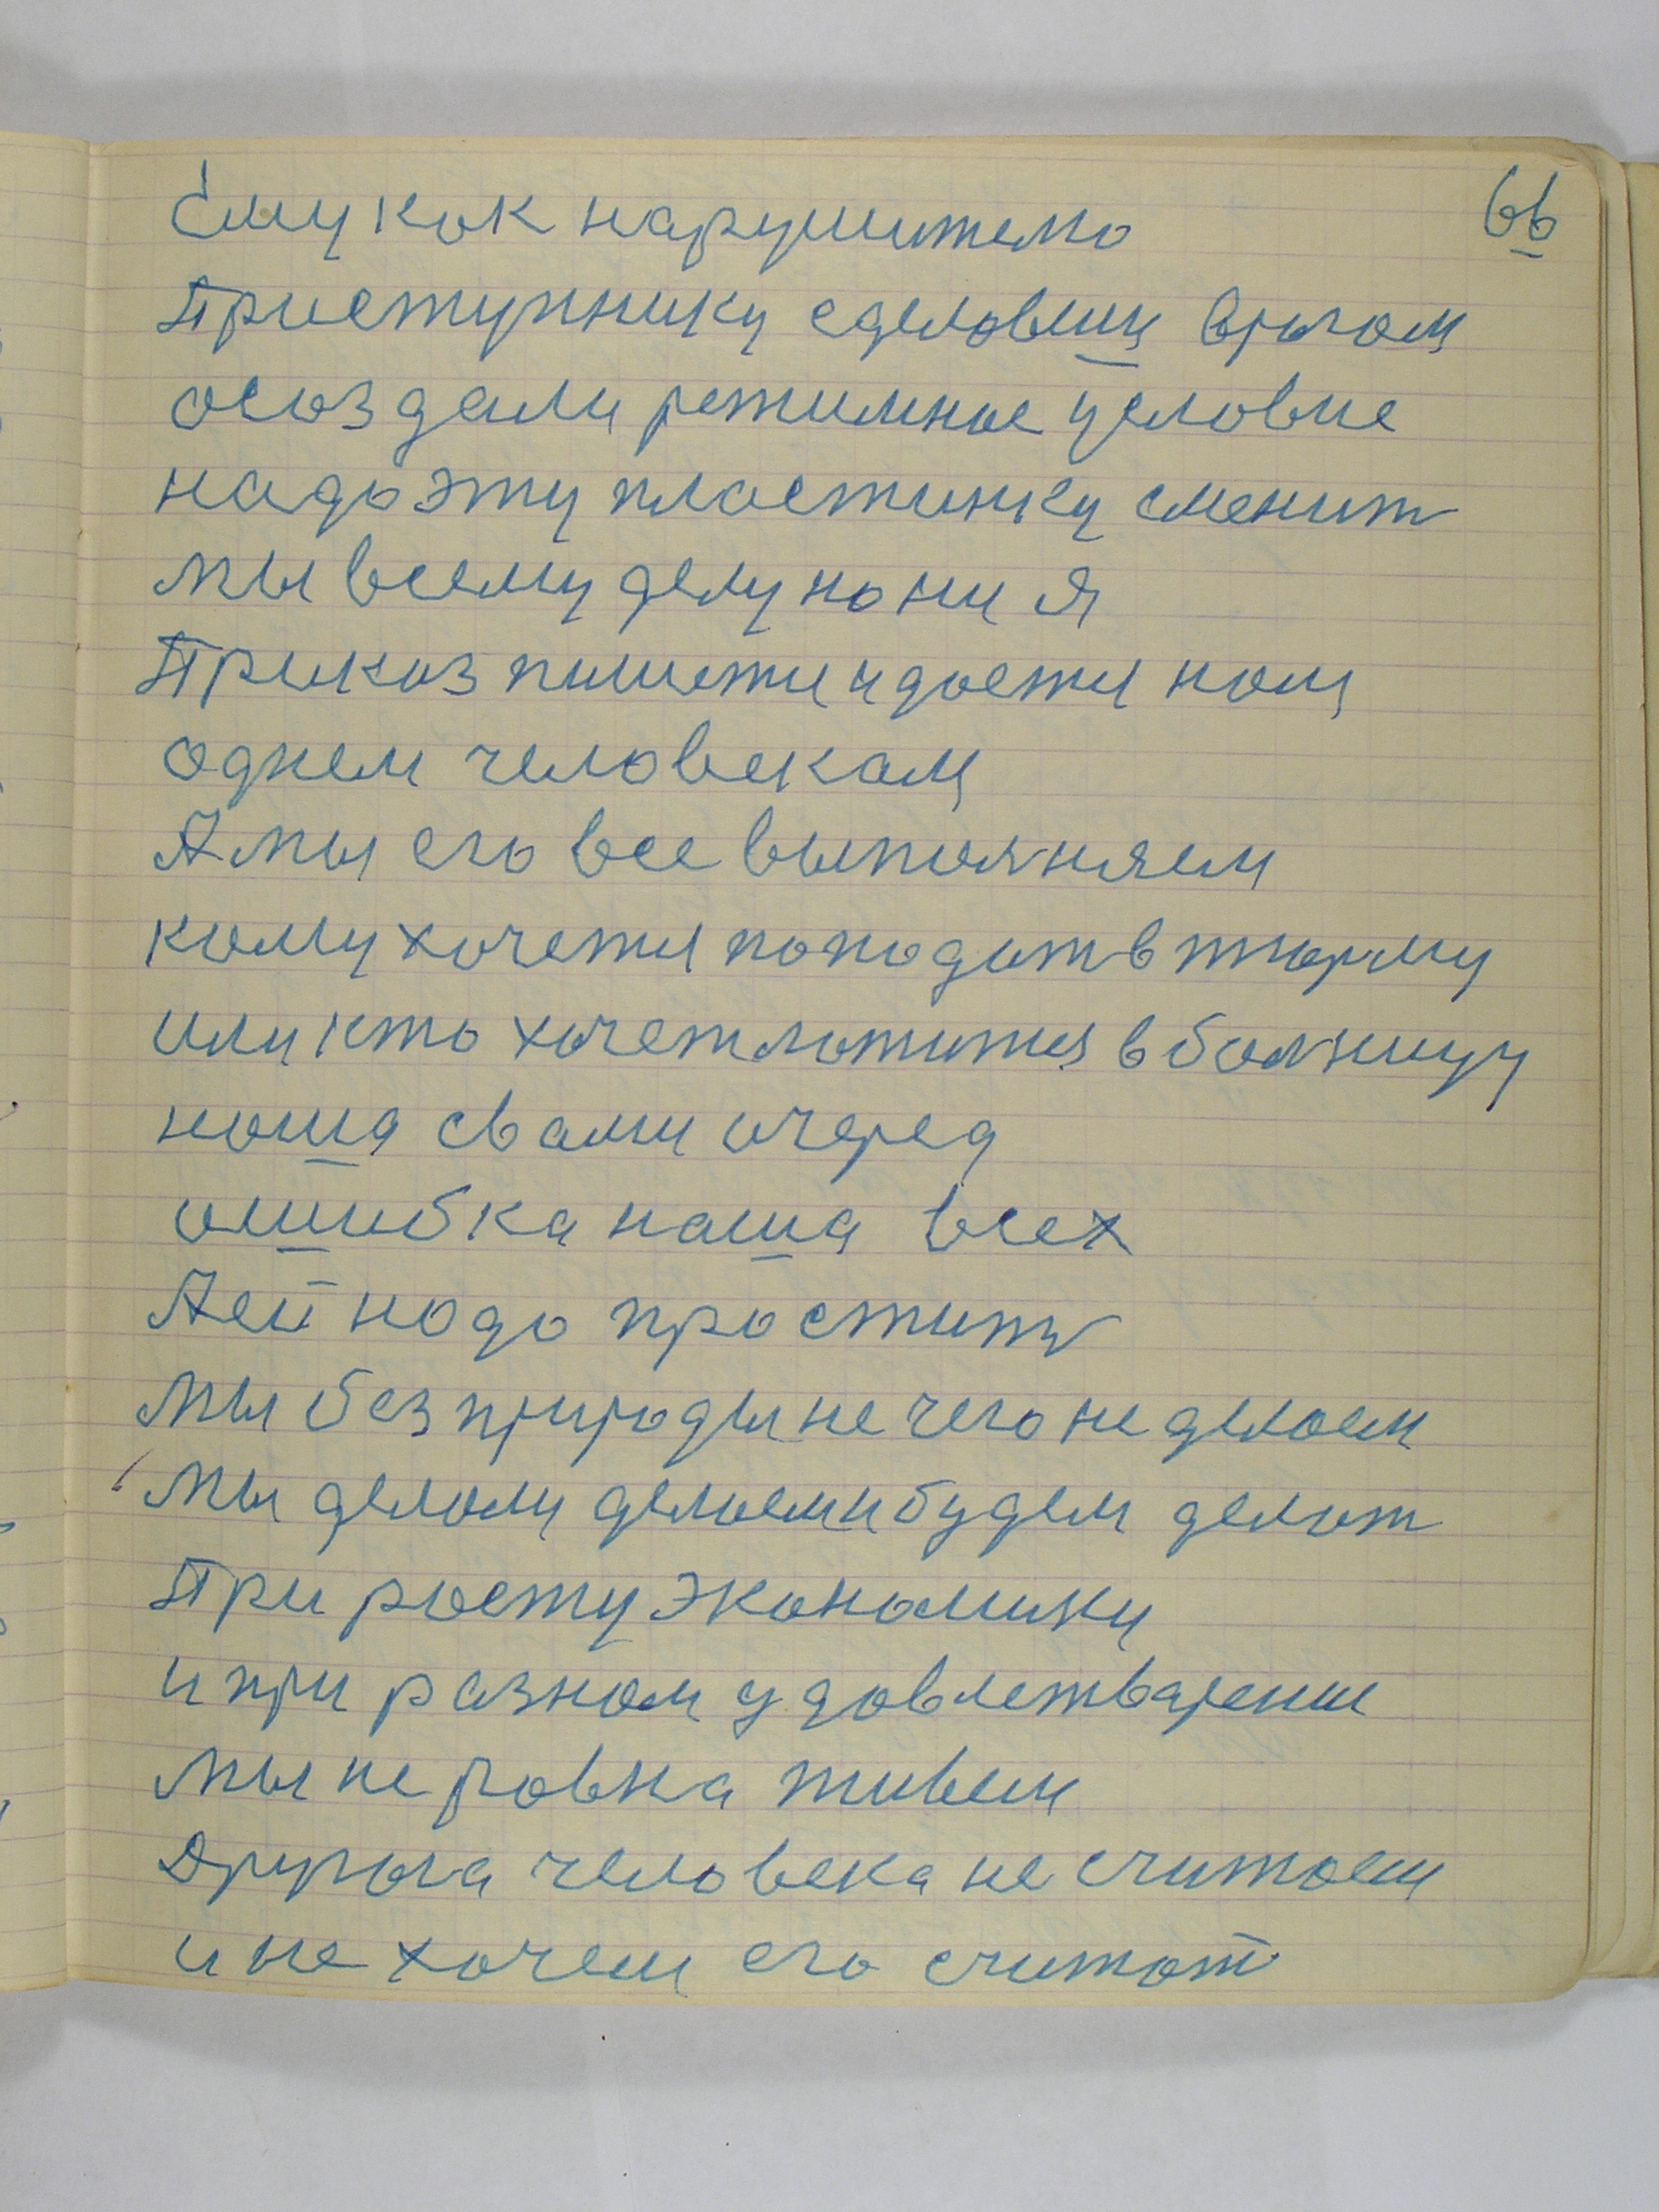 66
Ему как нарушителю
Приступнику сделавши врагом
а создали режимное условие
надо эту пластинку сменит
мы всему делу нони я
Приказ пишется и дается нам
однем человекам
А мы его все выполняем
кому хочется попадат в тюрму
или кто хочет ложится в болницу
наша с вами очеред
ошибка наша всех
А ей надо простит
мы без природы не чего не делаем
мы делали делаем и будем делат
При росту экономики
и при разном удовлетварение
мы не ровна живем
Другога человека не считаем
и не хочем его считат